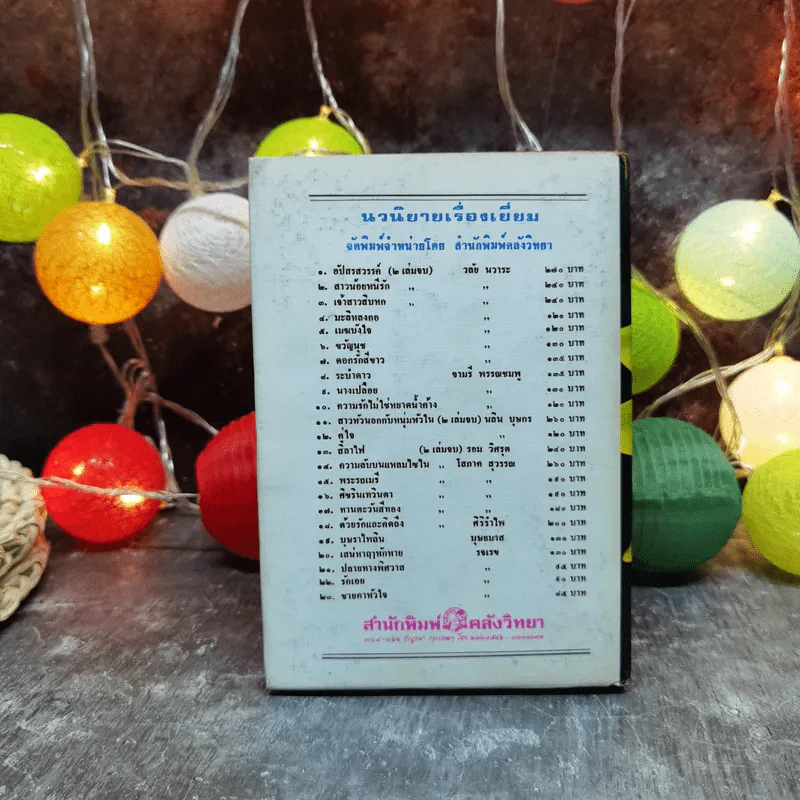 นวนิยายเรื่องเยี่ยม
จัดพิมพ์จำหน่ายโดย สำนักพิมพ์คลังวิทยา
๑. อัปสรสวรรค์ (๒ เล่มจบ) วลัย นวาระ ๒๗๐ บาท
๒. สาวน้อยหนีรัก ,, ,, ๒๔๐ บาท
๓. เจ้าสาวสิบหก ,, ,, ๒๔๐ บาท
๔. มะลิหลงกอ ,, ๑๒๐ บาท
๕. เมฆบังใจ ,, ๑๒๐ บาท
๖. ขวัญนุช ,, ๑๓๐ บาท
๗. ดอกรักสีขาว ,, ๑๓๕ บาท
๘. ระบำดาว จามรี พรรณชมพู ๑๓๕ บาท
๙. นางเปลือย ,, ๑๓๐ บาท
๑๐. ความรักไม่ใช่หยาดน้ำค้าง ,, ๑๒๐ บาท
๑๑. สาวหัวนอกกับหนุ่มหัวใน (๒ เล่มจบ) นลิน บุษกร ๒๖๐ บาท
๑๒. คู่ใจ ,, ๑๒๐ บาท
๑๓. ลีลาไฟ (๒ เล่มจบ) รอม วิศรุต ๒๔๐ บาท
๑๔. ความลับบนแหลมไซใน ,, โสภาค สุวรรณ ๒๖๐ บาท
๑๕. พระรถเมรี ,, ,, ๑๙๐ บาท
๑๖. ศิขรินเทวินตา ,, ,, ๑๙๐ บาท
๑๗. ทานตะวันสีทอง ,, ,, ๑๘๐ บาท
๑๘. ด้วยรักและคิดถึง ,, ศิริรำไพ ๒๐๐ บาท
๑๙. บุษราไพลิน บุษยมาส ๑๓๐ บาท
๒๐. เสน่หาฤาหักหาย รจเรข ๑๓๐ บาท
๒๑. ปลายทางพิศวาส ,, ๙๕ บาท
๒๒. รักเอย ,, ๙๐ บาท
๒๓. ชายคาหัวใจ ,, ๘๕ บาท
สำนักพิมพ์ คลังวิทยา